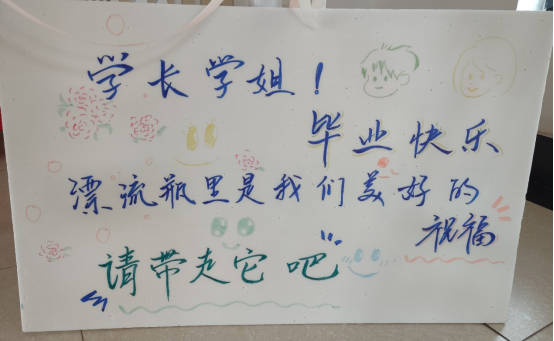 学长学姐！
毕业快乐
漂流瓶里是我们美好的
祝福
请带走它吧